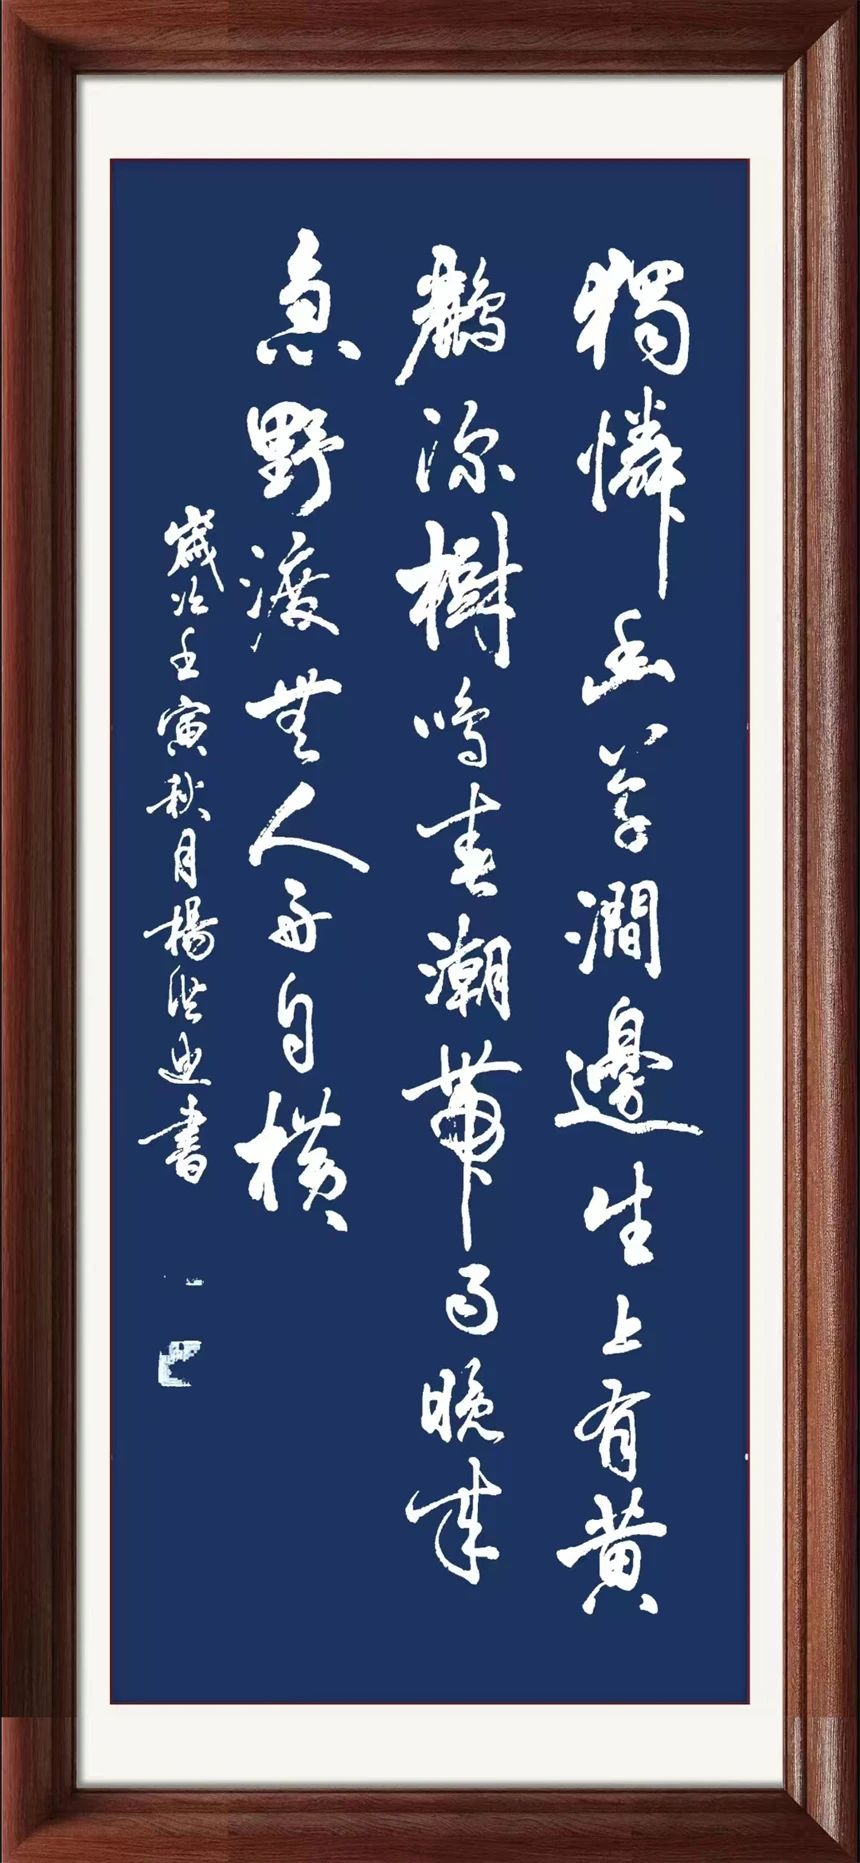 獨憐幽草澗邊生上有黃
鸝深樹鳴春潮帶雨晚來
急野渡無人舟自橫
歲次壬寅秋月楊書